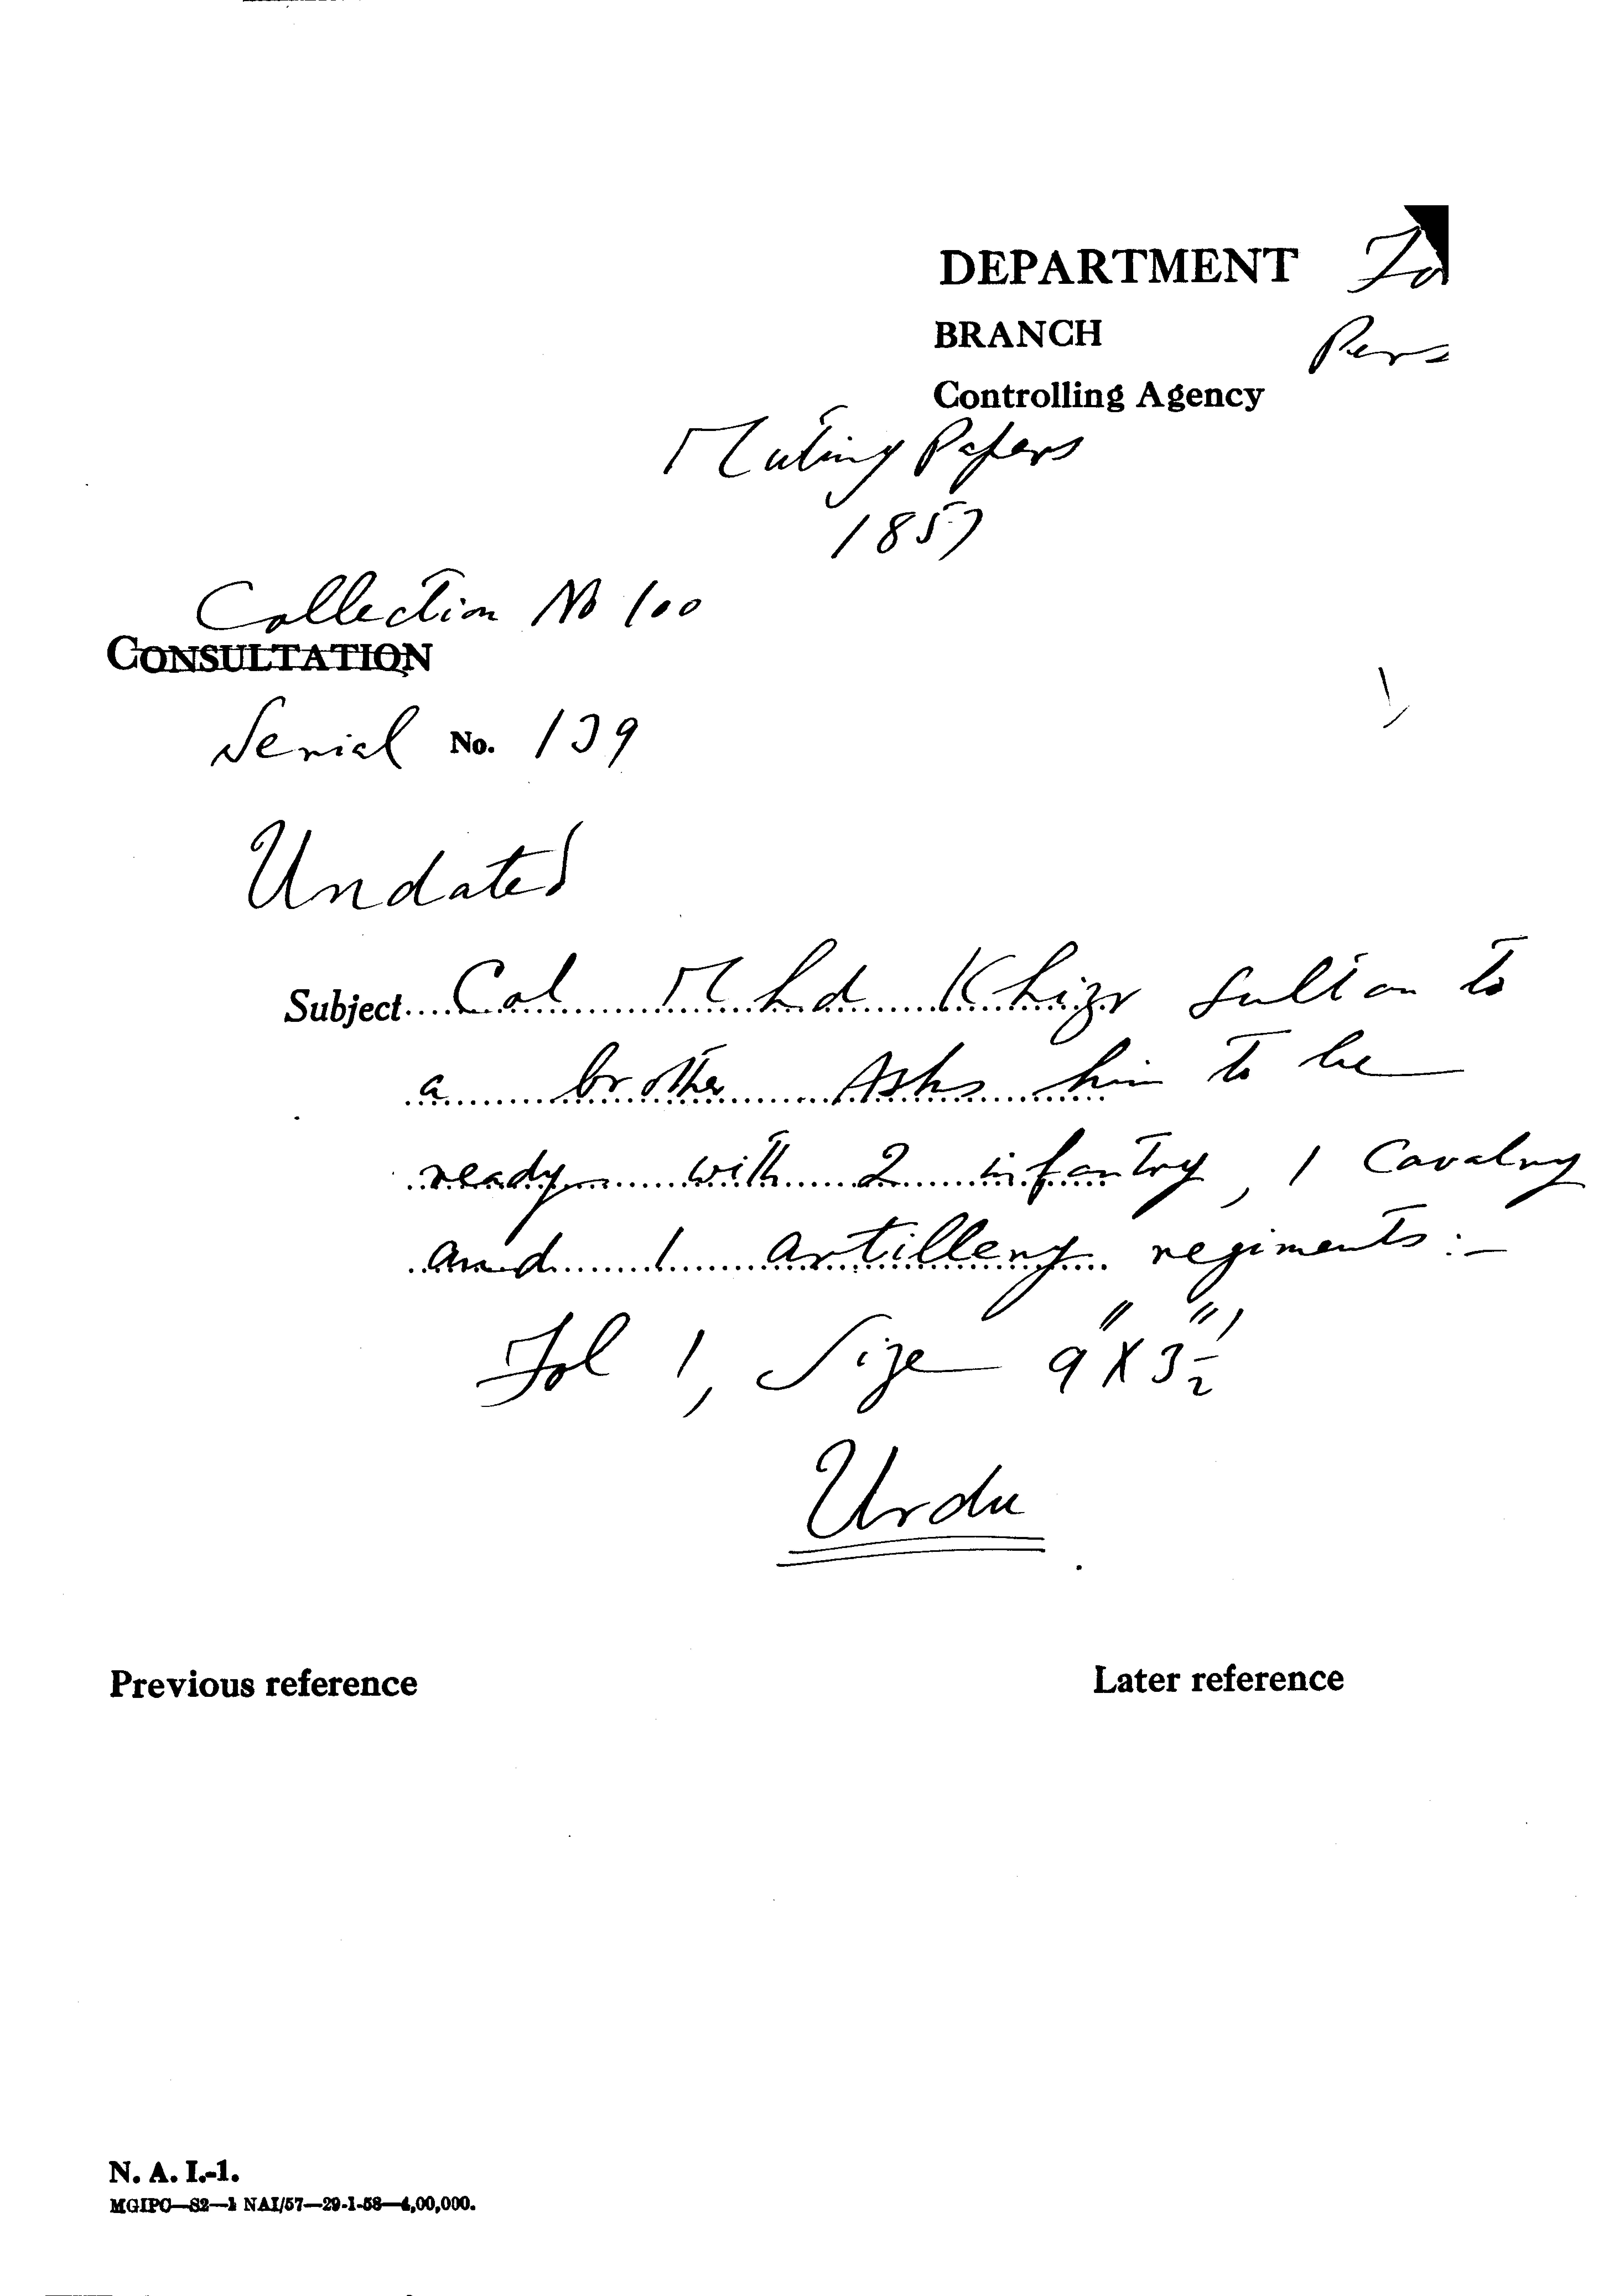 DEPARTMENT Fo
BRANCH Pers
Controlling Agency
Mutiny Papers
1857
Collection No 100
CONSULTATION
Serial No. 139
Undated
Subject....Col Mhd Khizr Sultan to
a brother Asks him to be
ready with 2 infantry, 1 Cavalry
and 1 artillery regiments:-
Fol 1, Size 9" X 3 1/2"
Urdu
Previous reference Later reference
N. A. I.-1.
MGIPC—S2—1 NAI/57—29-1-58—4,00,000.